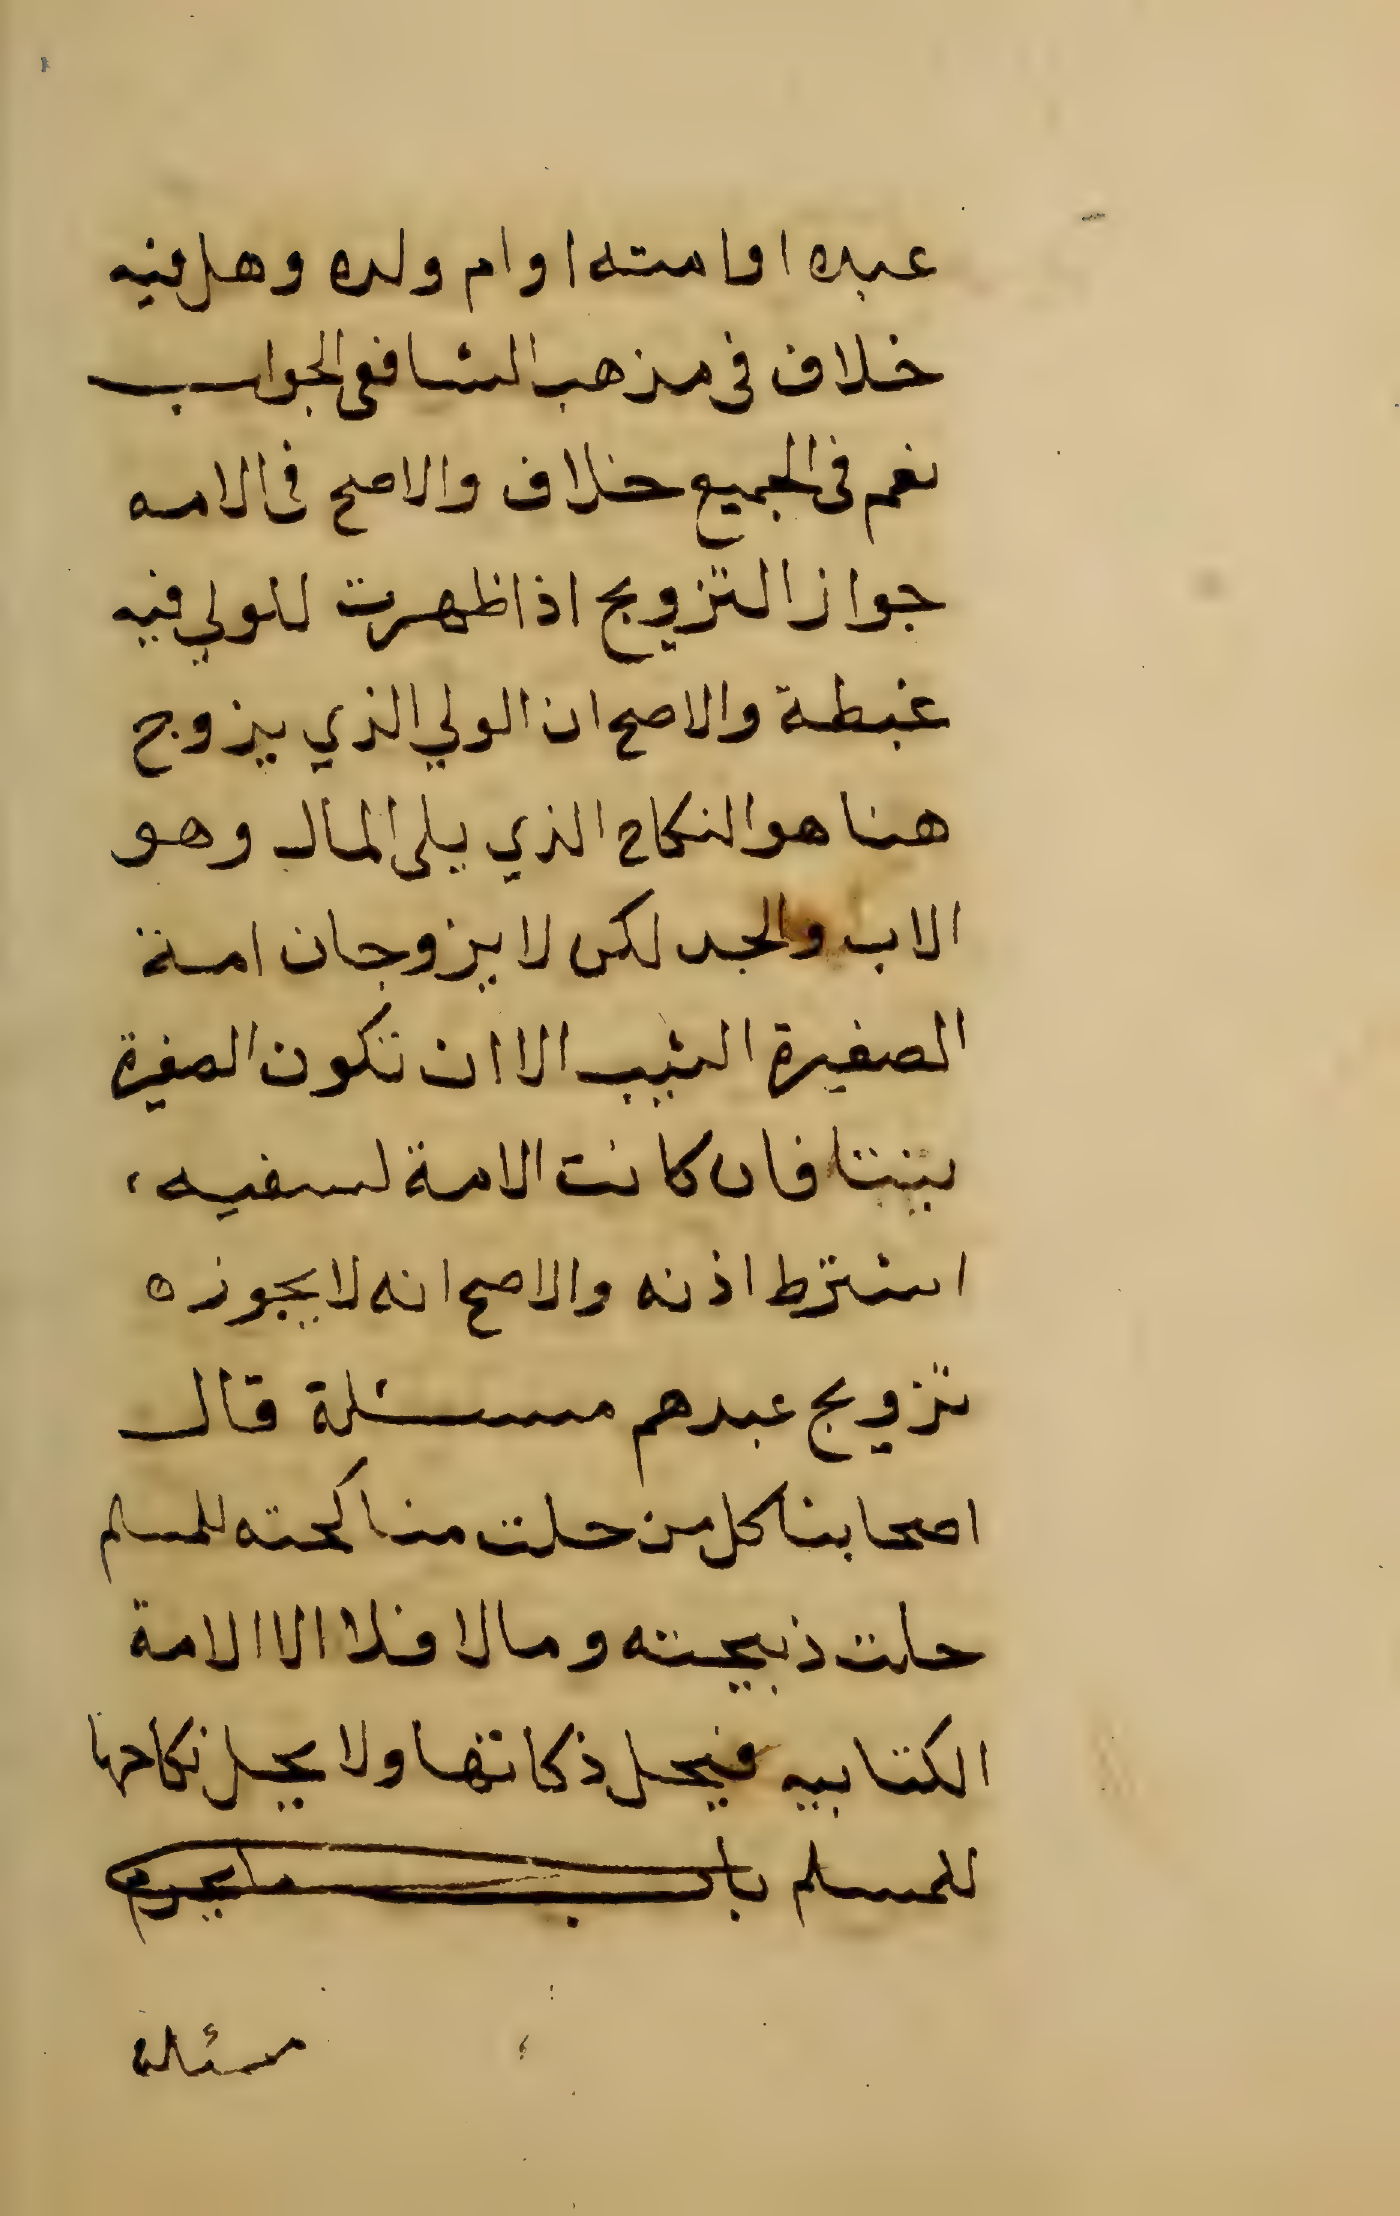 عبده او امته او ام ولده وهل فيه
خلاف فى مذهب الشافعى الجواب
نعم فى الجميع خلاف والاصح فى الامه
جواز التزويج اذا ظهرت للولي فيه
غبطة والاصح ان الولي الذي يزوج
هنا هو النكاح الذي يلى المال وهو
الاب والجد لكن لا يزوجان امة
الصغيرة الثيب الا ان تكون الصغيرة
بنتا فان كانت الامة لسفيه،
اشترط اذنه والاصح انه لا يجوز ه
تزويج عبدهم مسئلة قال
اصحابنا كل من حلت مناكحته للمسلم
حلت ذبيحته وما لا فلا الا الامة
الكتابيه فيحل ذكاتها ولا يحل نكاحها
للمسلم باب ما يحرم
مسئله